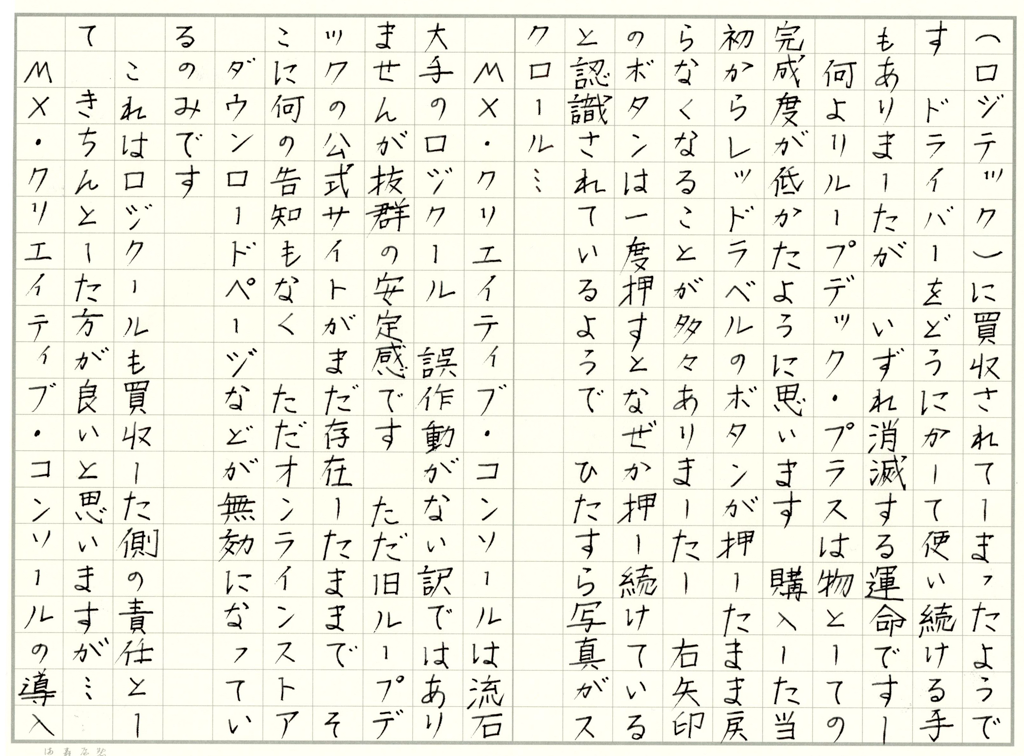 （ロジテック）に買収されてしまったようで
す　ドライバーをどうにかして使い続ける手
もありましたが　いずれ消滅する運命ですし
何よりループデック・プラスは物としての
完成度が低かたように思います　購入した当
初からレッドラベルのボタンが押したまま戻
らなくなることが多々ありましたし　右矢印
のボタンは一度押すとなぜか押し続けている
と認識されているようで　ひたすら写真がス
クロール…
MX・クリエイティブ・コンソールは流石
大手のロジクール　誤作動がない訳ではあり
ませんが抜群の安定感です　ただ旧ループデ
ックの公式サイトがまだ存在したままで　そ
こに何の告知もなく　ただオンラインストア
ダウンロードページなどが無効になってい
るのみです
これはロジクールも買収した側の責任とし
て　きちんとした方が良いと思いますが…
MX・クリエイティブ・コンソールの導入